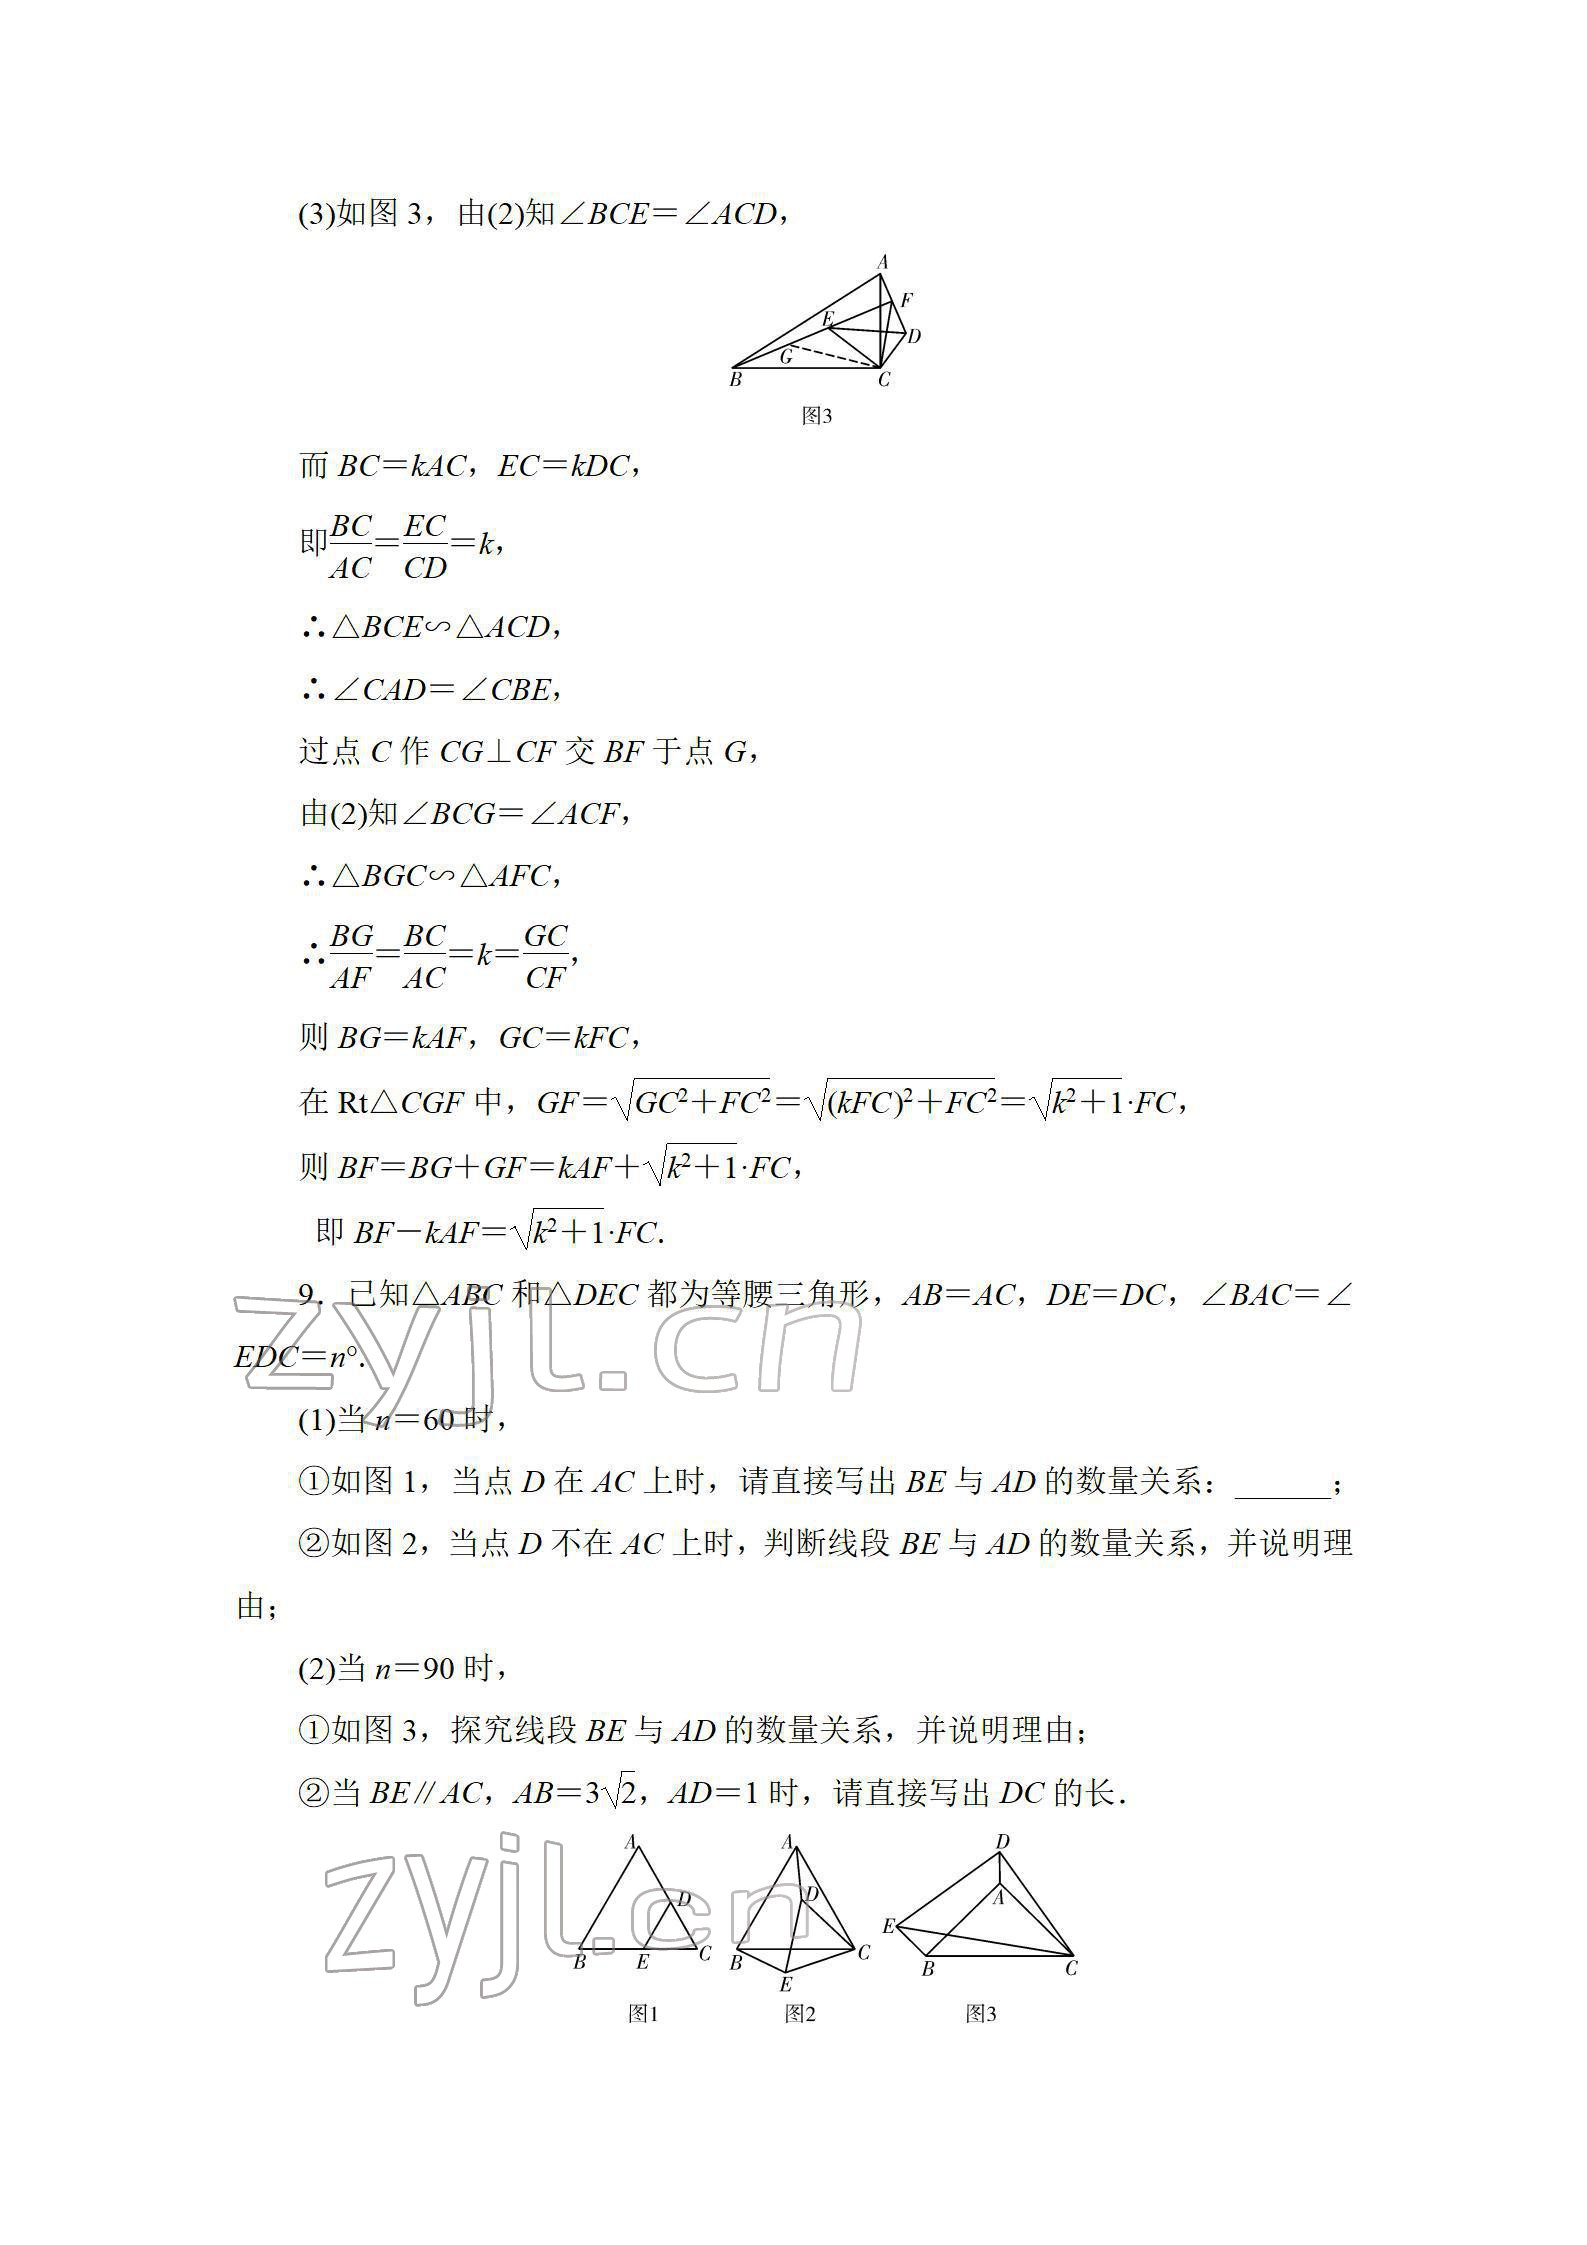 (3)如图 3，由(2)知∠BCE＝∠ACD，
A
F
E
D
G
B
C
图3
而 BC＝kAC，EC＝kDC，
即BC/AC＝EC/CD＝k，
∴△BCE∽△ACD，
∴∠CAD＝∠CBE，
过点 C 作 CG⊥CF 交 BF 于点 G，
由(2)知∠BCG＝∠ACF，
∴△BGC∽△AFC，
∴BG/AF＝BC/AC＝k＝GC/CF，
则 BG＝kAF，GC＝kFC，
在 Rt△CGF 中，GF＝√(GC²＋FC²)＝√((kFC)²＋FC²)＝√(k²＋1)·FC，
则 BF＝BG＋GF＝kAF＋√(k²＋1)·FC，
即 BF－kAF＝√(k²＋1)·FC.
9．已知△ABC 和△DEC 都为等腰三角形，AB＝AC，DE＝DC，∠BAC＝∠
EDC＝n°.
(1)当 n＝60 时，
①如图 1，当点 D 在 AC 上时，请直接写出 BE 与 AD 的数量关系：______；
②如图 2，当点 D 不在 AC 上时，判断线段 BE 与 AD 的数量关系，并说明理
由；
(2)当 n＝90 时，
①如图 3，探究线段 BE 与 AD 的数量关系，并说明理由；
②当 BE∥AC，AB＝3√2，AD＝1 时，请直接写出 DC 的长．
A
D
B
E
C
图1
A
D
B
C
E
图2
D
A
E
B
C
图3
zyjl.cn
zyjl.cn